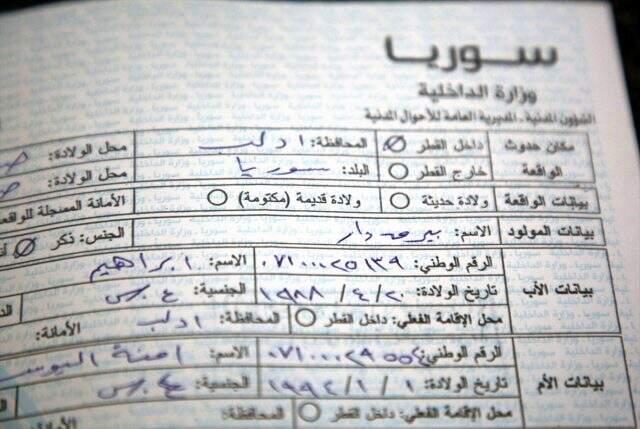 سوريا
وزارة الداخلية
الشؤون المدنية - المديرية العامة للأحوال المدنية
مكان حدوث الواقعة داخل القطر المحافظة: ادلب محل الولادة:
خارج القطر البلد: سوريا محل الولادة:
بيانات الواقعة ولادة حديثة ولادة قديمة (مكتومة) الأمانة المسجلة للواقعة
بيانات المولود الاسم: الجنس: ذكر
بيانات الأب الرقم الوطني: الاسم: ابراهيم
تاريخ الولادة: ٢٠ / ٤ / ١٩٨٨ الجنسية:
محل الإقامة الفعلي: داخل القطر المحافظة: ادلب الأمانة:
بيانات الأم الرقم الوطني: الاسم: امنة
تاريخ الولادة: ١ / ١ / ١٩٩٢ الجنسية:
محل الإقامة الفعلي: داخل القطر المحافظة: